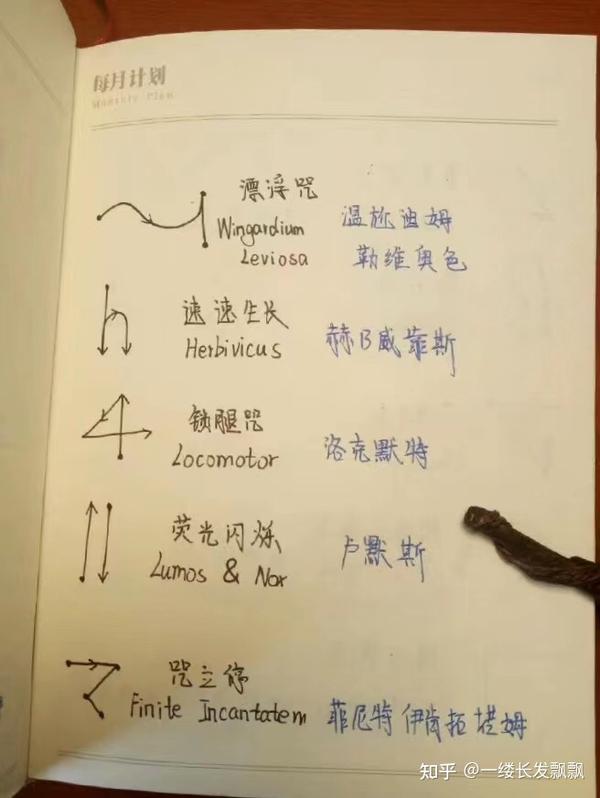 每月计划
Monthly Plan
漂浮咒
Wingardium
Leviosa
温尬迪姆
勒维奥色
速速生长
Herbivicus
赫B威菲斯
锁腿咒
Locomotor
洛克默特
荧光闪烁
Lumos & Nox
卢默斯
咒立停
Finite Incantatem
菲尼特 伊肯拓塔姆
知乎 @一缕长发飘飘